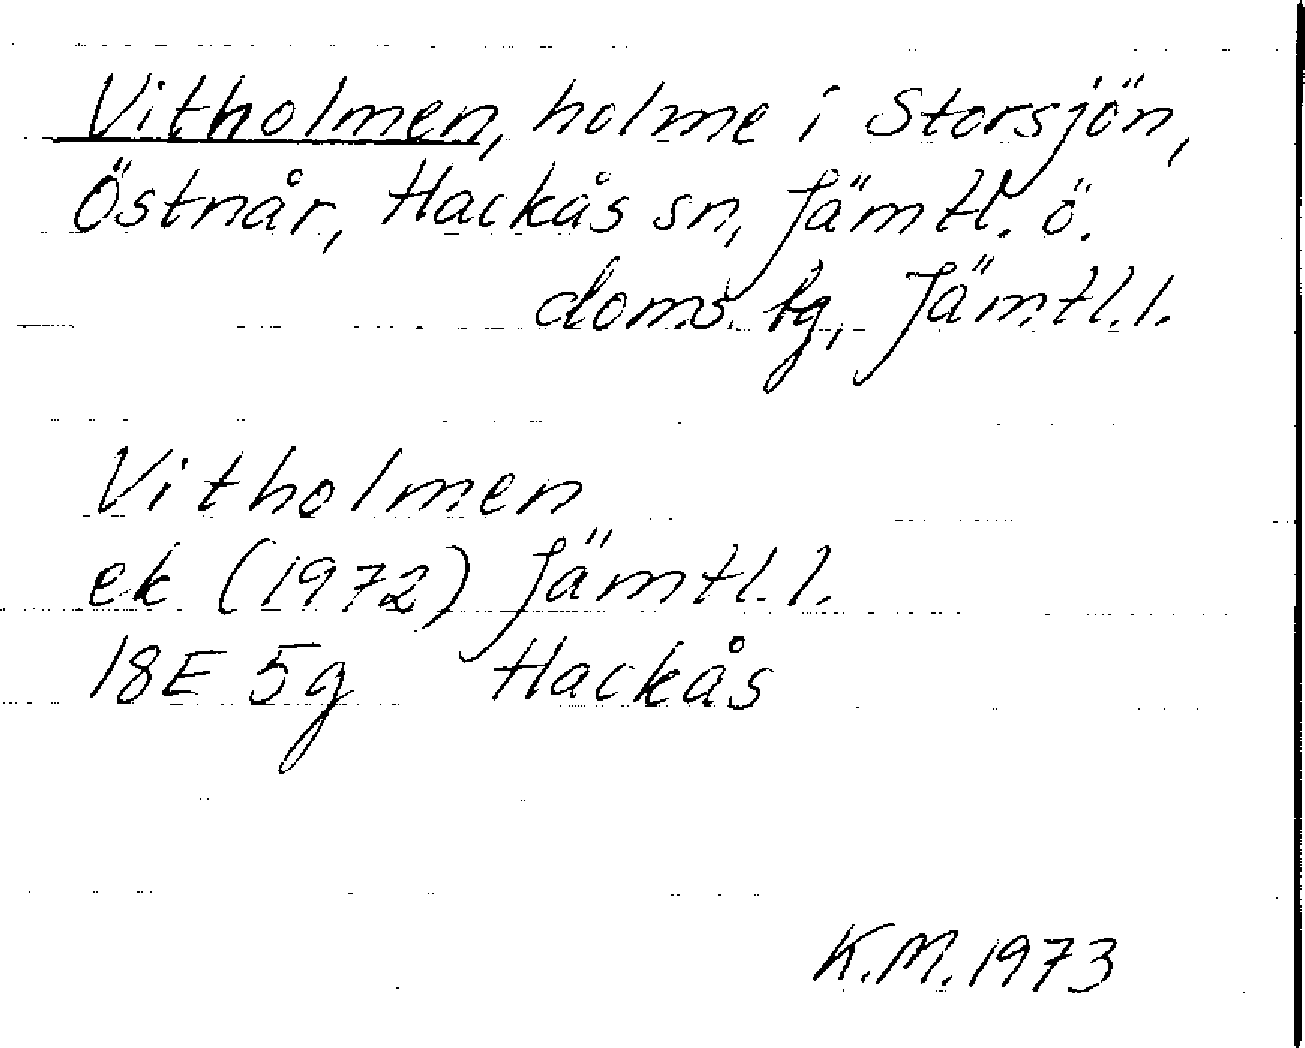 Vitholmen, holme i Storsjön,
Östnår, Hackås sn, Jämtl. ö.
doms. tg, Jämtl. l.
Vitholmen
ek (1972) Jämtl. l.
18E 5g Hackås
K.M. 1973